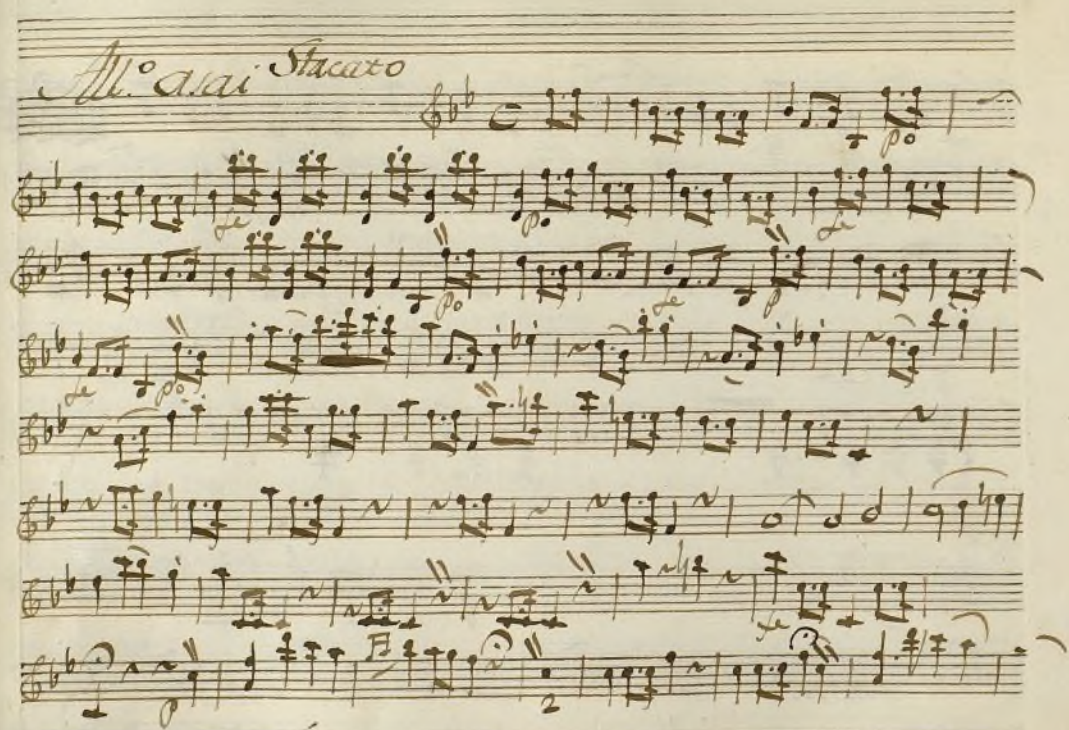 All.º asai Stacato
po
fe po fe
po fe p
fe po
fe
p 2